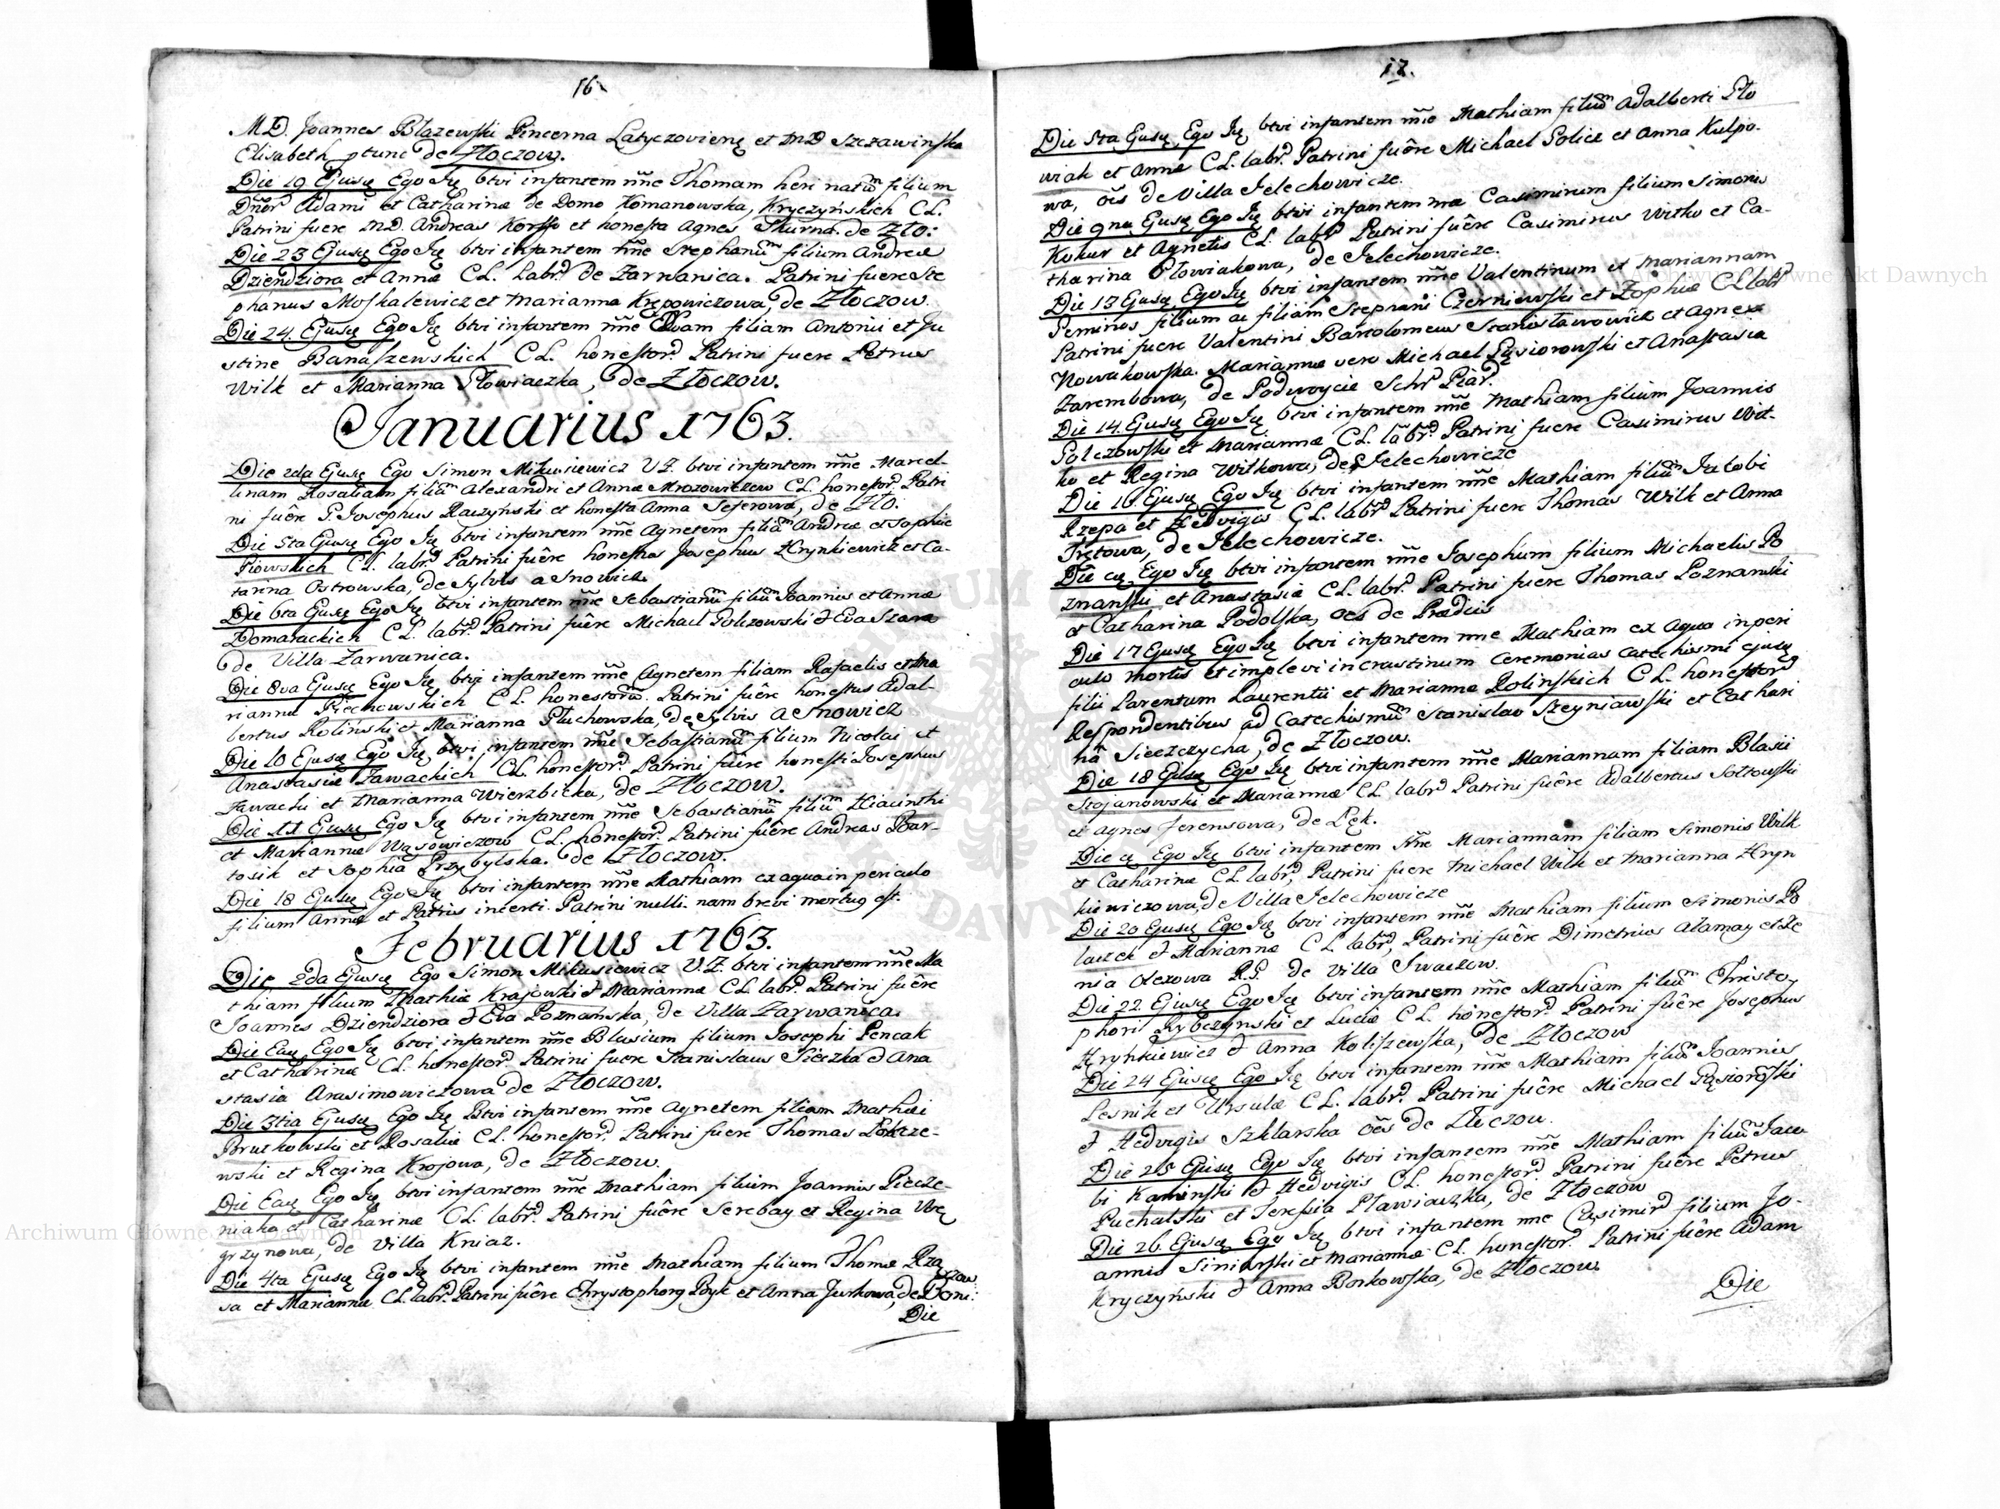 16
M.D. Joannes Błazewski Pincerna Latyczoviens et M.D. Szczawińska
Elisabeth ptunc de Złoczow.
Die 19 Ejusq Ego Jq btvi infantem nne Thomam heri natum filium
Dnor Adami et Catharinæ de Domo Komanowska, Kryczyńskich CL.
Patrini fuere M.D. Andreas Korsso et honesta Agnes Skurna de Zło:
Die 23 Ejusq Ego Jq btvi infantem nne Stephanum filium Andreæ
Dziendziora et Annæ CL. Labr. de Zarwanica. Patrini fuere Ste
phanus Moskalewicz et Marianna Krępowiczowa, de Złoczow.
Die 24. Ejusq Ego Jq btvi infantem nne Evam filiam Antonii et Ju
stine Banaszewskich CL. honestor. Patrini fuere Petrus
Wilk et Marianna Słowiaczka, de Złoczow.
Januarius 1763.
Die 2da Ejusq Ego Simon Mikusiewicz V.Z. btvi infantem nne Marcel-
linam Rosaliam filiam Alexandri et Annæ Mrozowiczow CL. honestor. Patri
ni fuêre P. Josephus Raczyński et honesta Anna Seferowa, de Zło.
Die 5ta Ejusq Ego Jq btvi infantem nne Agnetem filiam Andreæ et Sophiæ
Piowskich CL. labr. Patrini fuêre honestus Josephus Hrynkiewicz et Ca-
tarina Ostrowska, de Sylvis a Snowicz
Die 6ta Ejusq Ego Jq btvi infantem nne Sebastianum filium Joannis et Annæ
Domarackich CL. labr. Patrini fuêre Michael Polczowski & Eva Szara
de Villa Zarwanica.
Die 8va Ejusq Ego Jq btvi infantem nne Agnetem filiam Rafaelis et Ma
riannæ Piechowskich CL. honestorum. Patrini fuêre honestus Adal-
bertus Roliński et Marianna Pluchowska, de Sylvis a Snowicz
Die 10 Ejusq Ego Jq btvi infantem nne Sebastianum filium Nicolai et
Anastasiæ Zawackich CL. honestor. Patrini fuêre honesti Josephus
Zawacki et Marianna Wierzbicka, de Złoczow.
Die 11 Ejusq Ego Jq btvi infantem nne Sebastianum filium Hiacinthi
et Mariannæ Wąsowiczow CL. honestor. Patrini fuêre Andreas Bar-
tosik et Sophia Przybylska. de Złoczow.
Die 18 Ejusq Ego Jq btvi infantem nne Mathiam ex aqua in periculo
filium Annæ et Patris incerti. Patrini nulli. nam brevi mortuq est.
Februarius 1763.
Die 2da Ejusq Ego Simon Mikusiewicz V.Z. btvi infantem nne Ma
thiam filium Mathiæ Krajowski & Mariannæ CL. labr. Patrini fuêre
Joannes Dziendziora & Eva Poznańska, de Villa Zarwanica.
Die Eaq Ego Jq btvi infantem nne Blasium filium Josephi Pencak
et Catharinæ CL. honestor. Patrini fuere Stanislaus Sieczka & Ana
stasia Arasimowiczowa de Złoczow.
Die 3tia Ejusq Ego Jq btvi infantem nne Agnetem filiam Mathiæ
Brutkowski et Rosaliæ CL. honestor. Patrini fuere Thomas Pokrze-
wski et Regina Krojowa, de Złoczow.
Die Eaq Ego Jq btvi infantem nne Mathiam filium Joannis Piecze-
niaka et Catharinæ CL. labr. Patrini fuêre Serebay et Regina Wę
grzynowa, de Villa Kniaz.
Die 4ta Ejusq Ego Jq btvi infantem nne Mathiam filium Thomæ Rzą
sa et Mariannæ CL. labr. Patrini fuêre Chrystophorq Bryk et Anna Jurkowa, de
Die
17.
Die 5ta Ejusq Ego Jq btvi infantem nne Mathiam filium Adalberti Sło
wiak et Annæ CL. labr. Patrini fuêre Michael Police et Anna Kulpo-
wa, oes de Villa Jelechowicze.
Die 9na Ejusq Ego Jq btvi infantem nne Casimirum filium Simonis
Kukur et Agnetis CL. labr. Patrini fuêre Casimirus Witko et Ca-
tharina Słowiakowa, de Jelechowicze.
Die 13 Ejusq Ego Jq btvi infantem nne Valentinum et Mariannam
Geminos filium ac filiam Stephani Czerniewski et Zophiæ CL labr
Patrini fuere Valentini Bartolomeus Stanisławowicz et Agnes
Nowakowska. Mariannæ vero Michael Gąsiorowski et Anastasia
Zarembowa, de Podwoycie Schr Piar.
Die 14. Ejusq Ego Jq btvi infantem nne Mathiam filium Joannis
Polczowski et Mariannæ CL. labr. Patrini fuere Casimirus Wit-
ko et Regina Witkowa, de Jelechowicze
Die 16. Ejusq Ego Jq btvi infantem nne Mathiam filium Jacobi
Rzepa et Hedvigis CL. labr. Patrini fuere Thomas Wilk et Anna
Frętowa, de Jelechowicze.
Die eq Ego Jq btvi infantem nne Josephum filium Michaelis Po
znanski et Anastasiæ CL. labr. Patrini fuere Thomas Poznanski
et Catharina Podolska, oes de Prædiis
Die 17 Ejusq Ego Jq btvi infantem nne Mathiam ex aqua in peri
culo mortis et implevi in crastinum ceremonias catechismi ejusq
filii Parentum Laurentii et Mariannæ Rolinskich CL. honestor
Respondentibus ad Catechismum Stanislao Skyniawski et Cathari
na Sieczczycha, de Złoczow.
Die 18 Ejusq Ego Jq btvi infantem nne Mariannam filiam Blasii
Stojanowski et Mariannæ CL. labr. Patrini fuêre Adalbertus Sołtowski
et Agnes Ferensowa, de Lęk.
Die eq Ego Jq btvi infantem nne Mariannam filiam Simonis Wilk
et Catharinæ CL. labr. Patrini fuere Michael Wilk et Marianna Hryn
kiewiczowa, de Villa Jelechowicze
Die 20 Ejusq Ego Jq btvi infantem nne Mathiam filium Simonis Po
laczek & Mariannæ CL. labr. Patrini fuêre Dimetrius Atamay et Xe
nia Olexowa R.G. de Villa Iwaczow.
Die 22. Ejusq Ego Jq btvi infantem nne Mathiam filium Christo
phori Rybczynski et Luciæ CL. honestor. Patrini fuêre Josephus
Hrynkiewicz & Anna Koliszewska, de Złoczow
Die 24 Ejusq Ego Jq btvi infantem nne Mathiam filium Joannis
Lesnik et Ursulæ CL. labr. Patrini fuêre Michael Gąsiorowski
& Hedvigis Szklarska oes de Złoczow.
Die 25 Ejusq Ego Jq btvi infantem nne Mathiam filium Jaco
bi Kaminski & Hedvigis CL. honestor. Patrini fuêre Petrus
Puchalski et Teressia Pławiaczka, de Złoczow
Die 26. Ejusq Ego Jq btvi infantem nne Casimir filium Jo-
annis Siniarski et Mariannæ CL. honestor. Patrini fuêre Adam
Kryczyński & Anna Borkowska, de Złoczow
Die
Archiwum Główne Akt Dawnych